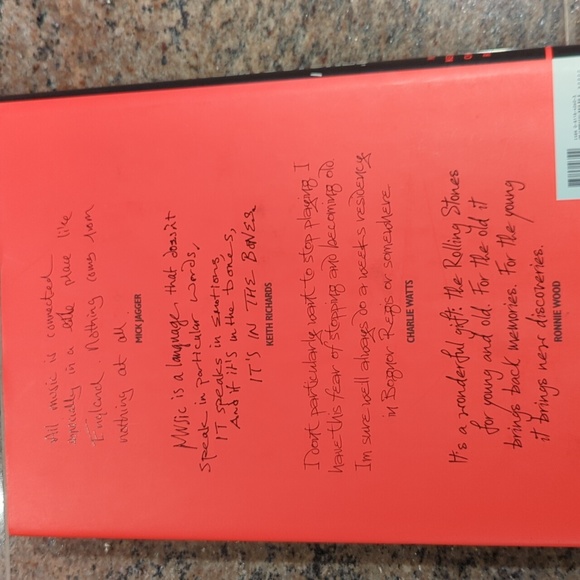 All music is connected
especially in a little place like
England. Nothing comes from
nothing at all.
MICK JAGGER
MUSIC is a language that doesn't
speak in particular words.
IT speaks in emotions
And if it's in the bones,
IT'S IN THE BONES
KEITH RICHARDS
I don't particularly want to stop playing I
have this fear of stopping and becoming old.
Im sure we'll always do a weeks residency
in Bognor Regis or somewhere
CHARLIE WATTS
It's a wonderful gift: the Rolling Stones
for young and old. For the old it
brings back memories. For the young
it brings new discoveries.
RONNIE WOOD